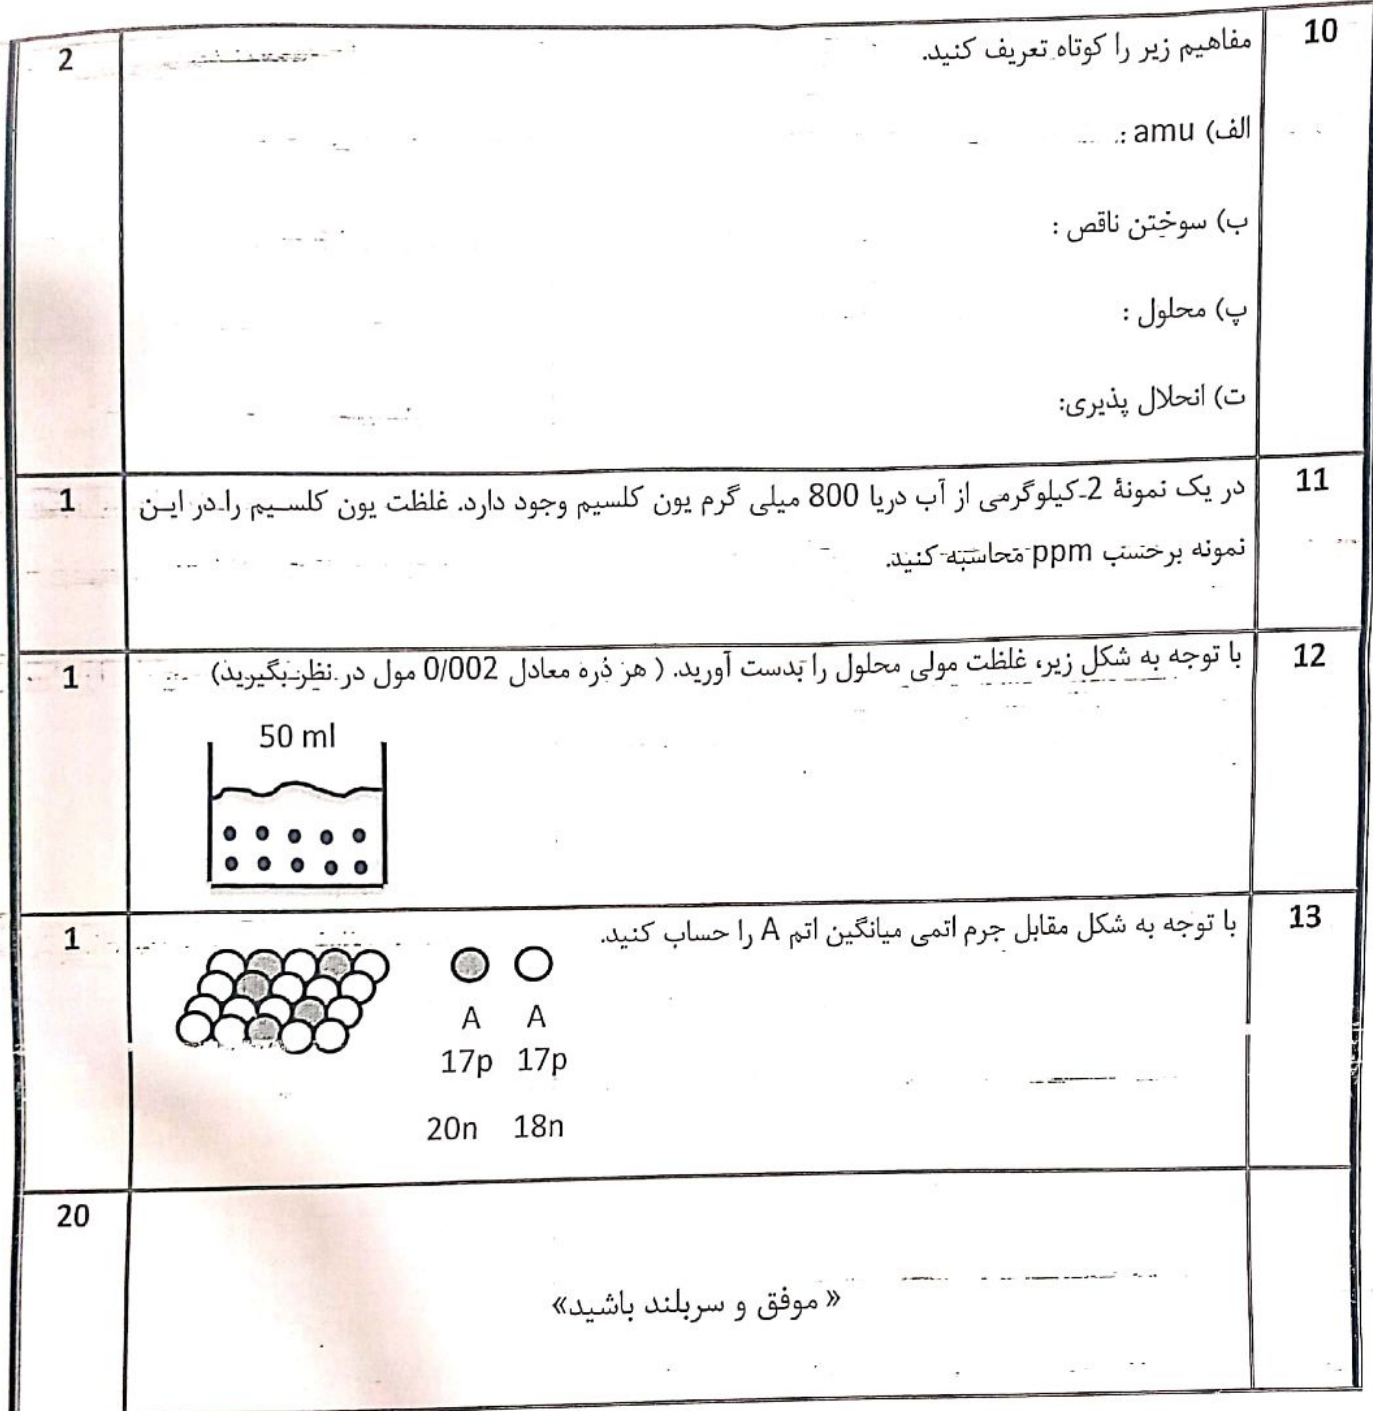 10
مفاهیم زیر را کوتاه تعریف کنید.
2
الف) amu :
ب) سوختن ناقص :
پ) محلول :
ت) انحلال پذیری:
11
در یک نمونهٔ 2 کیلوگرمی از آب دریا 800 میلی گرم یون کلسیم وجود دارد. غلظت یون کلسیم را در این
1
نمونه برحسب ppm محاسبه کنید.
12
با توجه به شکل زیر، غلظت مولی محلول را بدست آورید. ( هر ذره معادل 0/002 مول در نظر بگیرید)
1
50 ml
13
با توجه به شکل مقابل جرم اتمی میانگین اتم A را حساب کنید.
1
A A
17p 17p
20n 18n
20
« موفق و سربلند باشید»